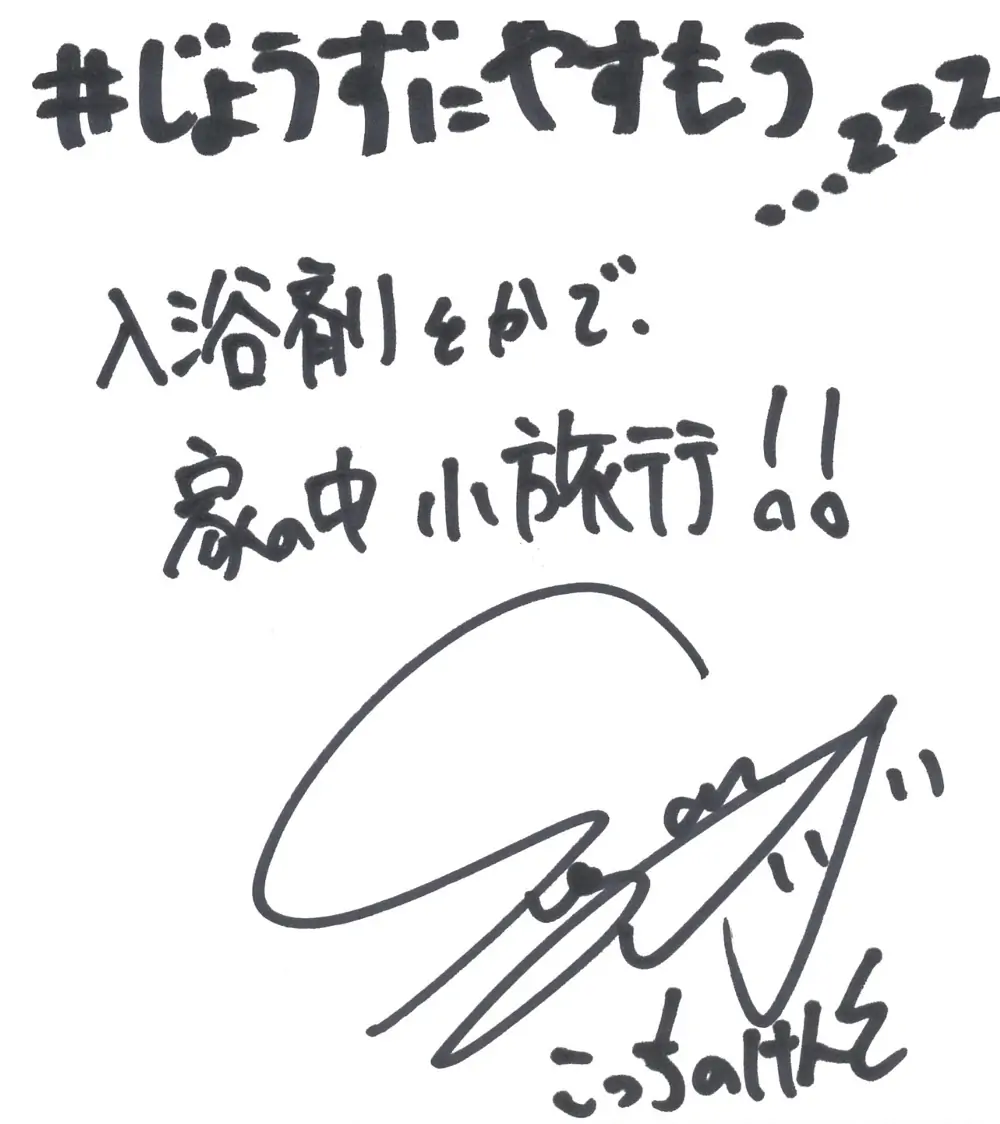 #じょうずにやすもう
...zzz
入浴剤とかで、
家の中 小旅行!!
こっちのけんと